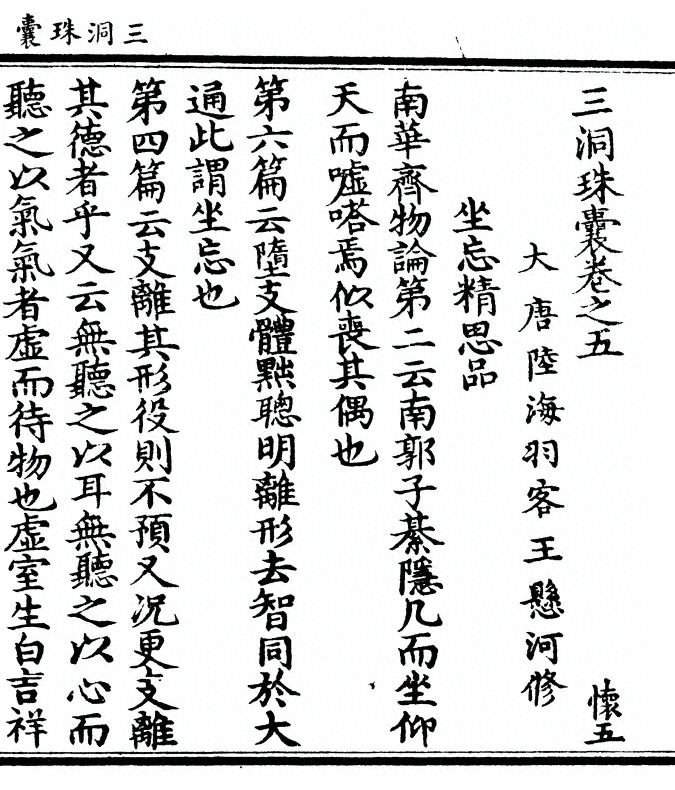 三洞珠囊
三洞珠囊卷之五
懷五
大唐陸海羽客王懸河修
坐忘精思品
南華齊物論第二云南郭子綦隱几而坐仰
天而噓嗒焉似喪其偶也
第六篇云墮支體黜聰明離形去智同於大
通此謂坐忘也
第四篇云支離其形役則不預又况更支離
其德者乎又云無聽之以耳無聽之以心而
聽之以氣氣者虛而待物也虛室生白吉祥